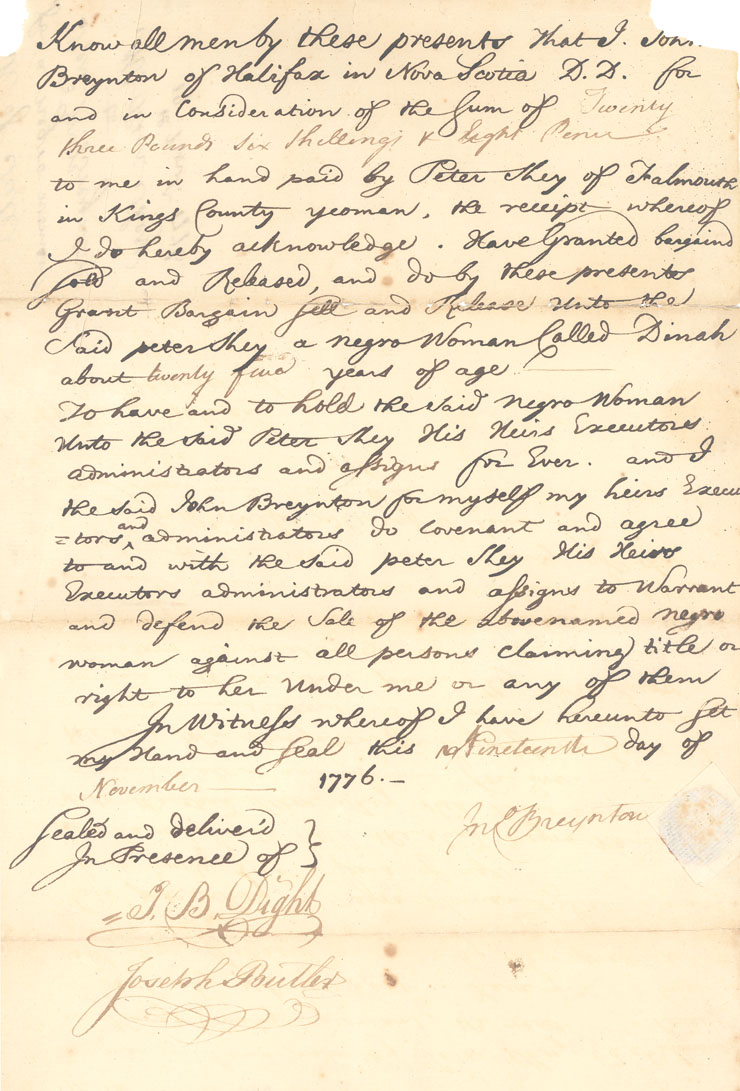 Know all men by these presents that I. John
Breynton of Halifax in Nova Scotia D.D. for
and in Consideration of the Sum of Twenty
three Pounds six Shellings & Eight Pence
to me in hand paid by Peter Shey of Falmouth
in Kings County yeoman, the receipt whereof
I do hereby acknowledge. Have Granted bargaind
Sold and Released, and do by these presents
Grant Bargain Sell and Release Unto the
Said peter Shey a negro Woman Called Dinah
about twenty five years of age
To have and to hold the said negro Woman
Unto the said Peter Shey His Heirs Executors
administrators and assigns for Ever. and I
the said John Breynton for myself my heirs Execu
=tors and administrators do Covenant and agree
to and with the said peter Shey His Heirs
Executors administrators and assigns to Warrant
and defend the Sale of the abovenamed negro
woman against all persons claiming title or
right to her Under me or any of them
In Witness whereof I have hereunto Set
my Hand and Seal this Nineteenth day of
November 1776.
Sealed and deliver'd
In Presence of
Jno Breynton
J. B. Dight
Joseph Butler